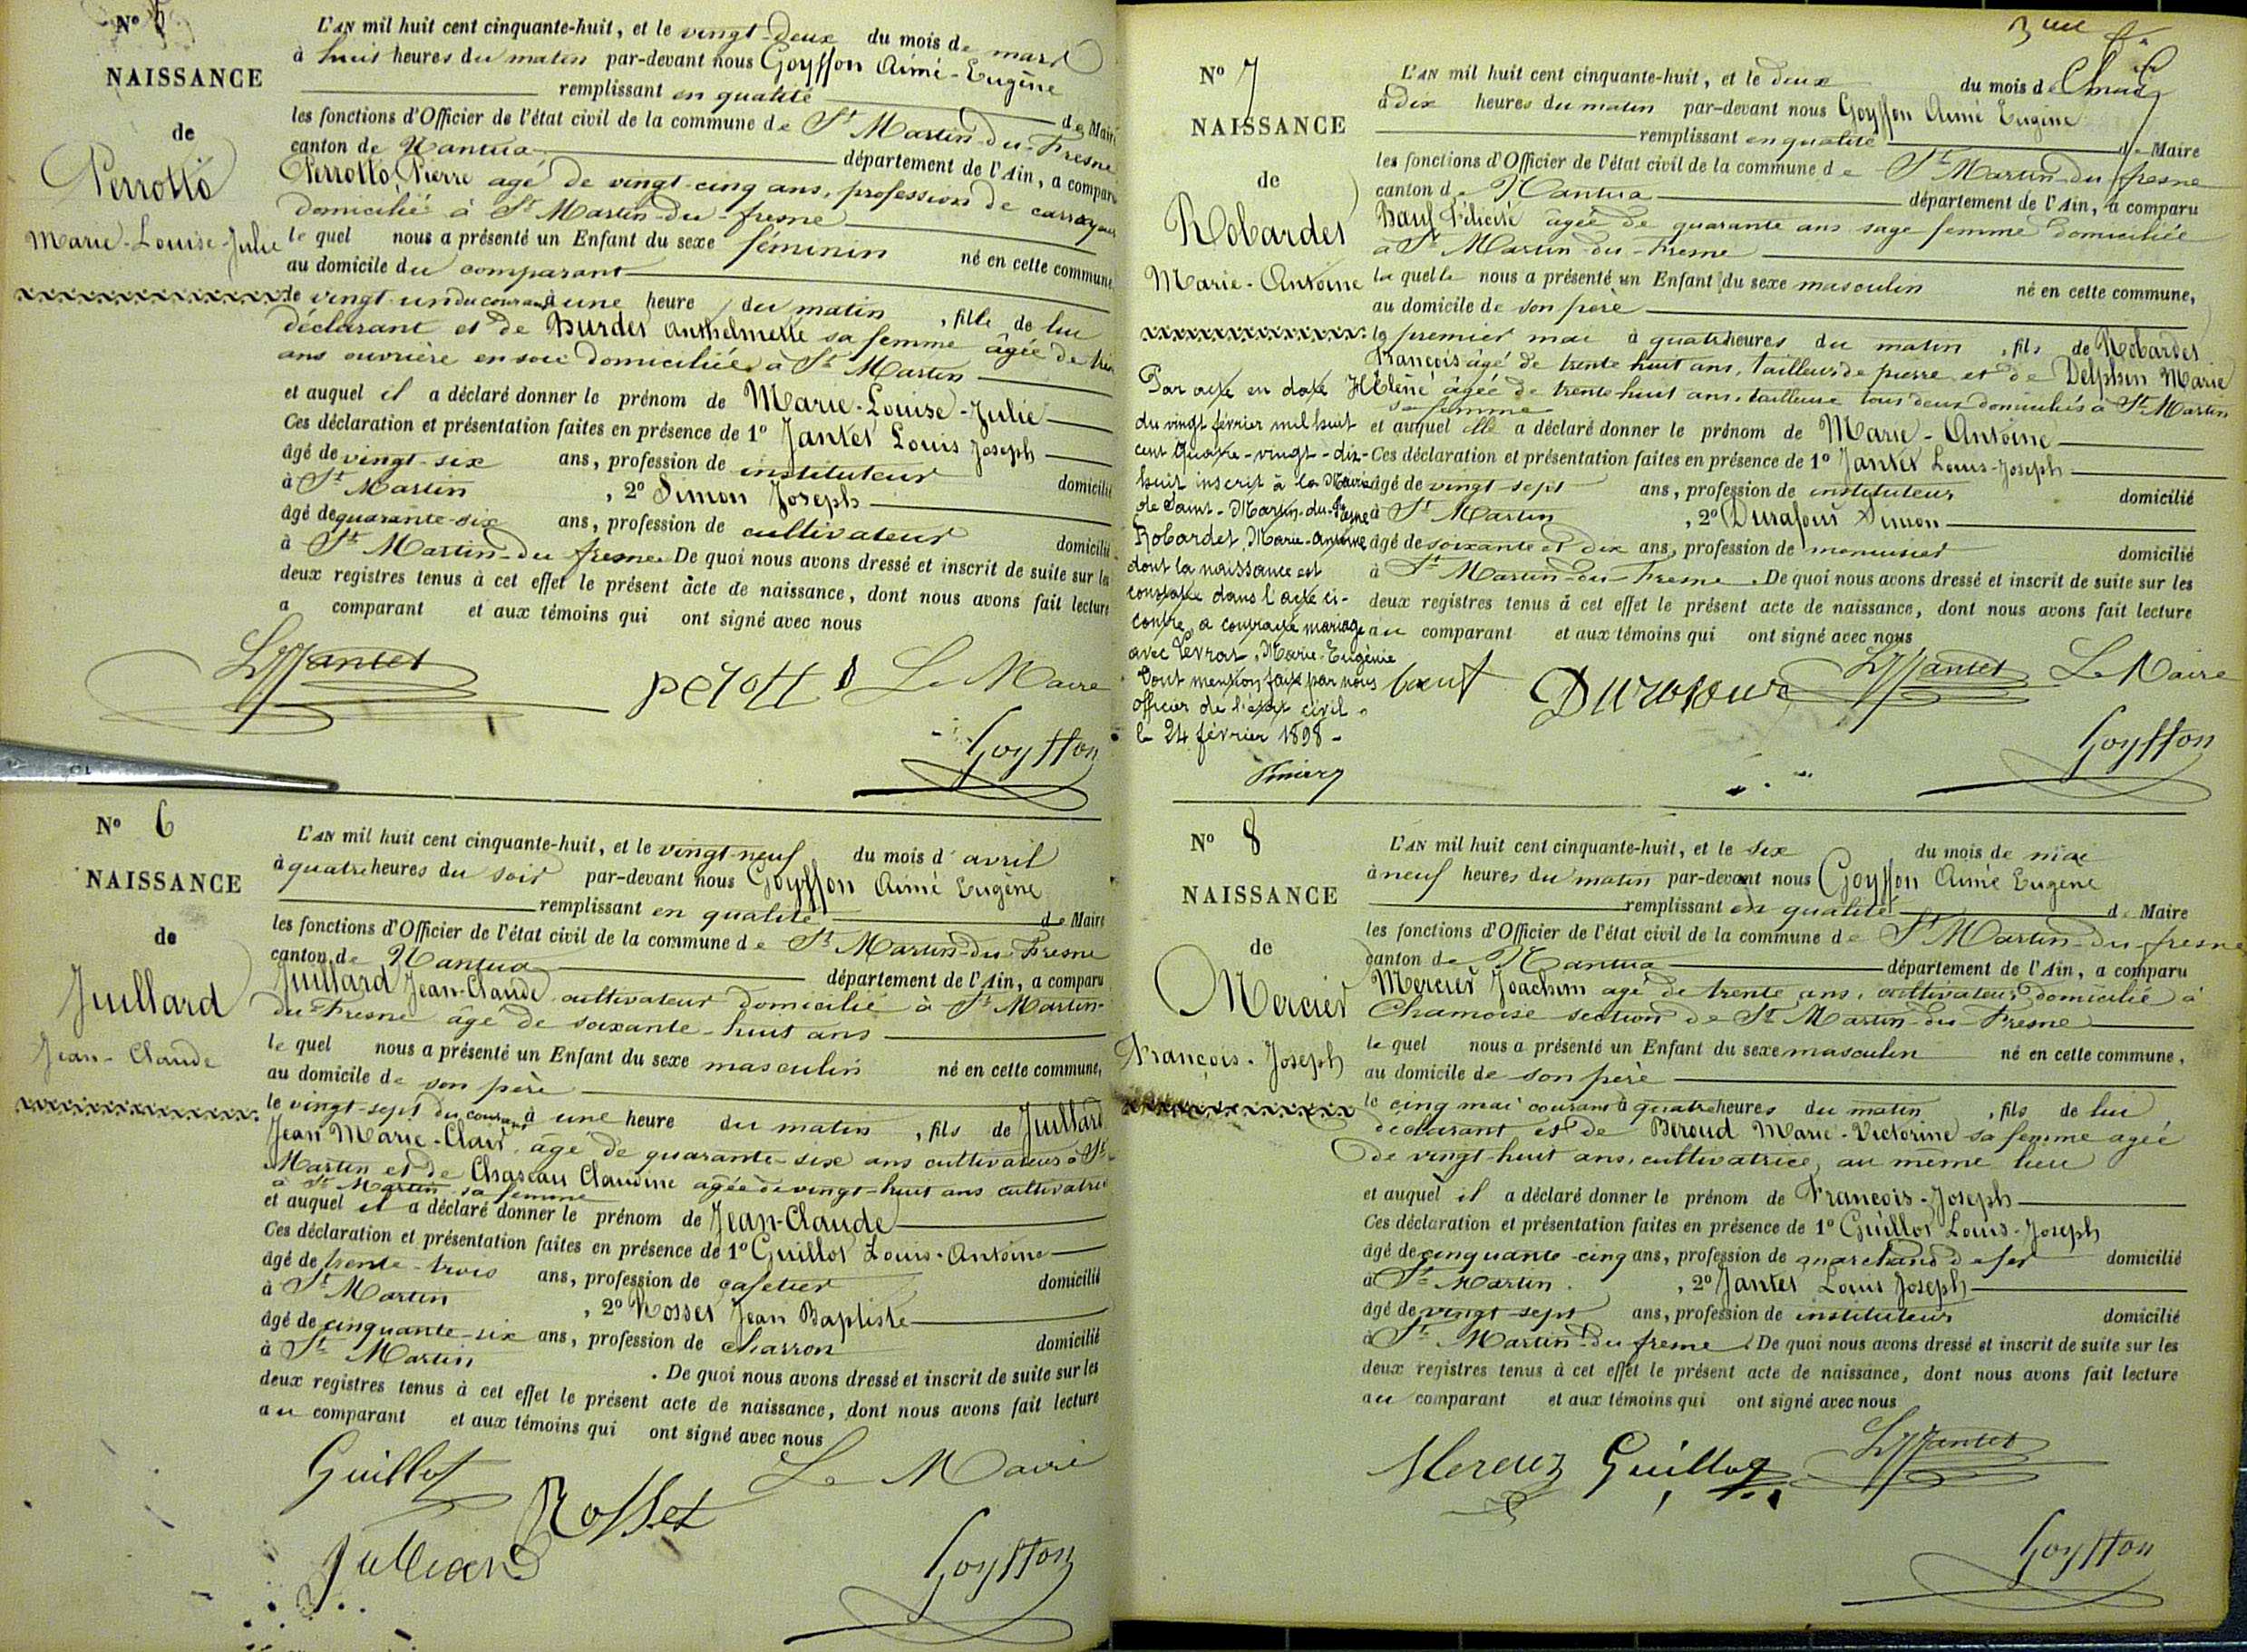 N° 5
NAISSANCE
de
Perrotto
Marie-Louise-Julie
L'AN mil huit cent cinquante-huit, et le vingt-deux du mois de mars
à huit heures du matin par-devant nous Goyffon Aimé-Eugène
remplissant en qualité de Maire
les fonctions d'Officier de l'état civil de la commune de St Martin-du-Fresne
canton de Nantua département de l'Ain, a comparu
Perrotto Pierre agé de vingt-cinq ans, profession de
domicilié à St Martin-du-fresne
le quel nous a présenté un Enfant du sexe féminin né en cette commune,
au domicile du comparant
le vingt-un du courant à une heure du matin, fille de lui
déclarant et de Burdet Anthelmette sa femme âgée de
ans ouvrière en soie domiciliée à St Martin
et auquel il a déclaré donner le prénom de Marie-Louise-Julie
Ces déclaration et présentation faites en présence de 1° Jantet Louis Joseph
âgé de vingt-six ans, profession de instituteur domicilié
à St Martin, 2° Simon Joseph
âgé de quarante-six ans, profession de cultivateur domicilié
à St Martin-du fresne. De quoi nous avons dressé et inscrit de suite sur les
deux registres tenus à cet effet le présent acte de naissance, dont nous avons fait lecture
a comparant et aux témoins qui ont signé avec nous
LJJantet perott Le Maire
Goyffon
N° 6
NAISSANCE
de
Juillard
Jean-Claude
L'AN mil huit cent cinquante-huit, et le vingt-neuf du mois d'avril
à quatre heures du soir par-devant nous Goyffon Aimé Eugène
remplissant en qualité de Maire
les fonctions d'Officier de l'état civil de la commune de St Martin-du-Fresne
canton de Nantua département de l'Ain, a comparu
Juillard Jean-Claude, cultivateur domicilié à St Martin-
du-Fresne âgé de soixante-huit ans
le quel nous a présenté un Enfant du sexe masculin né en cette commune,
au domicile de son père
le vingt-sept du courant à une heure du matin, fils de Juillard
Jean Marie-Clair, âgé de quarante-six ans cultivateur à St
Martin et de Chaseau Claudine agée de vingt-huit ans cultivatrice
à St Martin sa femme
et auquel il a déclaré donner le prénom de Jean-Claude
Ces déclaration et présentation faites en présence de 1° Guillot Louis-Antoine
âgé de trente-trois ans, profession de cafetier domicilié
à St Martin, 2° Rosset Jean Baptiste
âgé de cinquante-six ans, profession de charron domicilié
à St Martin. De quoi nous avons dressé et inscrit de suite sur les
deux registres tenus à cet effet le présent acte de naissance, dont nous avons fait lecture
au comparant et aux témoins qui ont signé avec nous
Guillot Rosset Le Maire
Juilliard Goyffon
N° 7
NAISSANCE
de
Robardet
Marie-Antoine
Par acte en date
du vingt février mil huit
cent quatre-vingt-dix-
huit inscrit à la Mairie
de Saint-Martin-du-Fresne
Robardet, Marie-Antoine
dont la naissance est
constatée dans l'acte ci-
contre, a contracté mariage
avec Levrat, Marie-Eugénie
Dont mention faite par nous
officier de l'état civil.
le 24 février 1898-
L'AN mil huit cent cinquante-huit, et le deux du mois de mai
à dix heures du matin par-devant nous Goyffon Aimé Eugène
remplissant en qualité de Maire
les fonctions d'Officier de l'état civil de la commune de St Martin-du-fresne
canton de Nantua département de l'Ain, a comparu
Bauf Félicité agée de quarante ans sage femme domiciliée
à St Martin-du-Fresne
la quelle nous a présenté un Enfant du sexe masculin né en cette commune,
au domicile de son père
le premier mai à quatre heures du matin, fils de Robardet
François âgé de trente huit ans, tailleur de pierre et de Delphin Marie
Hélène âgée de trente-huit ans, tailleuse tous deux domiciliés à St Martin
sa femme
et auquel elle a déclaré donner le prénom de Marie-Antoine
Ces déclaration et présentation faites en présence de 1° Jantet Louis-Joseph
âgé de vingt-sept ans, profession de instituteur domicilié
à St Martin, 2° Durafour Simon
âgé de soixante et dix ans, profession de menuisier domicilié
à St Martin-du-Fresne. De quoi nous avons dressé et inscrit de suite sur les
deux registres tenus à cet effet le présent acte de naissance, dont nous avons fait lecture
au comparant et aux témoins qui ont signé avec nous
bauf Durafour LJJantet Le Maire
Goyffon
N° 8
NAISSANCE
de
Mercier
François-Joseph
L'AN mil huit cent cinquante-huit, et le six du mois de mai
à neuf heures du matin par-devant nous Goyffon Aimé Eugène
remplissant en qualité de Maire
les fonctions d'Officier de l'état civil de la commune de St Martin-du-fresne
canton de Nantua département de l'Ain, a comparu
Mercier Joachim agé de trente ans, cultivateur domicilié à
Chamoise section de St Martin-du-Fresne
le quel nous a présenté un Enfant du sexe masculin né en cette commune,
au domicile de son père
le cinq mai courant à quatre heures du matin, fils de lui
déclarant et de Beroud Marie-Victorine sa femme agée
de vingt-huit ans, cultivatrice, au même lieu
et auquel il a déclaré donner le prénom de François-Joseph
Ces déclaration et présentation faites en présence de 1° Guillot Louis-Joseph
âgé de cinquante-cinq ans, profession de marchand de fer domicilié
à St Martin, 2° Jantet Louis Joseph
âgé de vingt-sept ans, profession de instituteur domicilié
à St Martin-du fresne. De quoi nous avons dressé et inscrit de suite sur les
deux registres tenus à cet effet le présent acte de naissance, dont nous avons fait lecture
au comparant et aux témoins qui ont signé avec nous
Mercier Guillot LJJantet
Goyffon